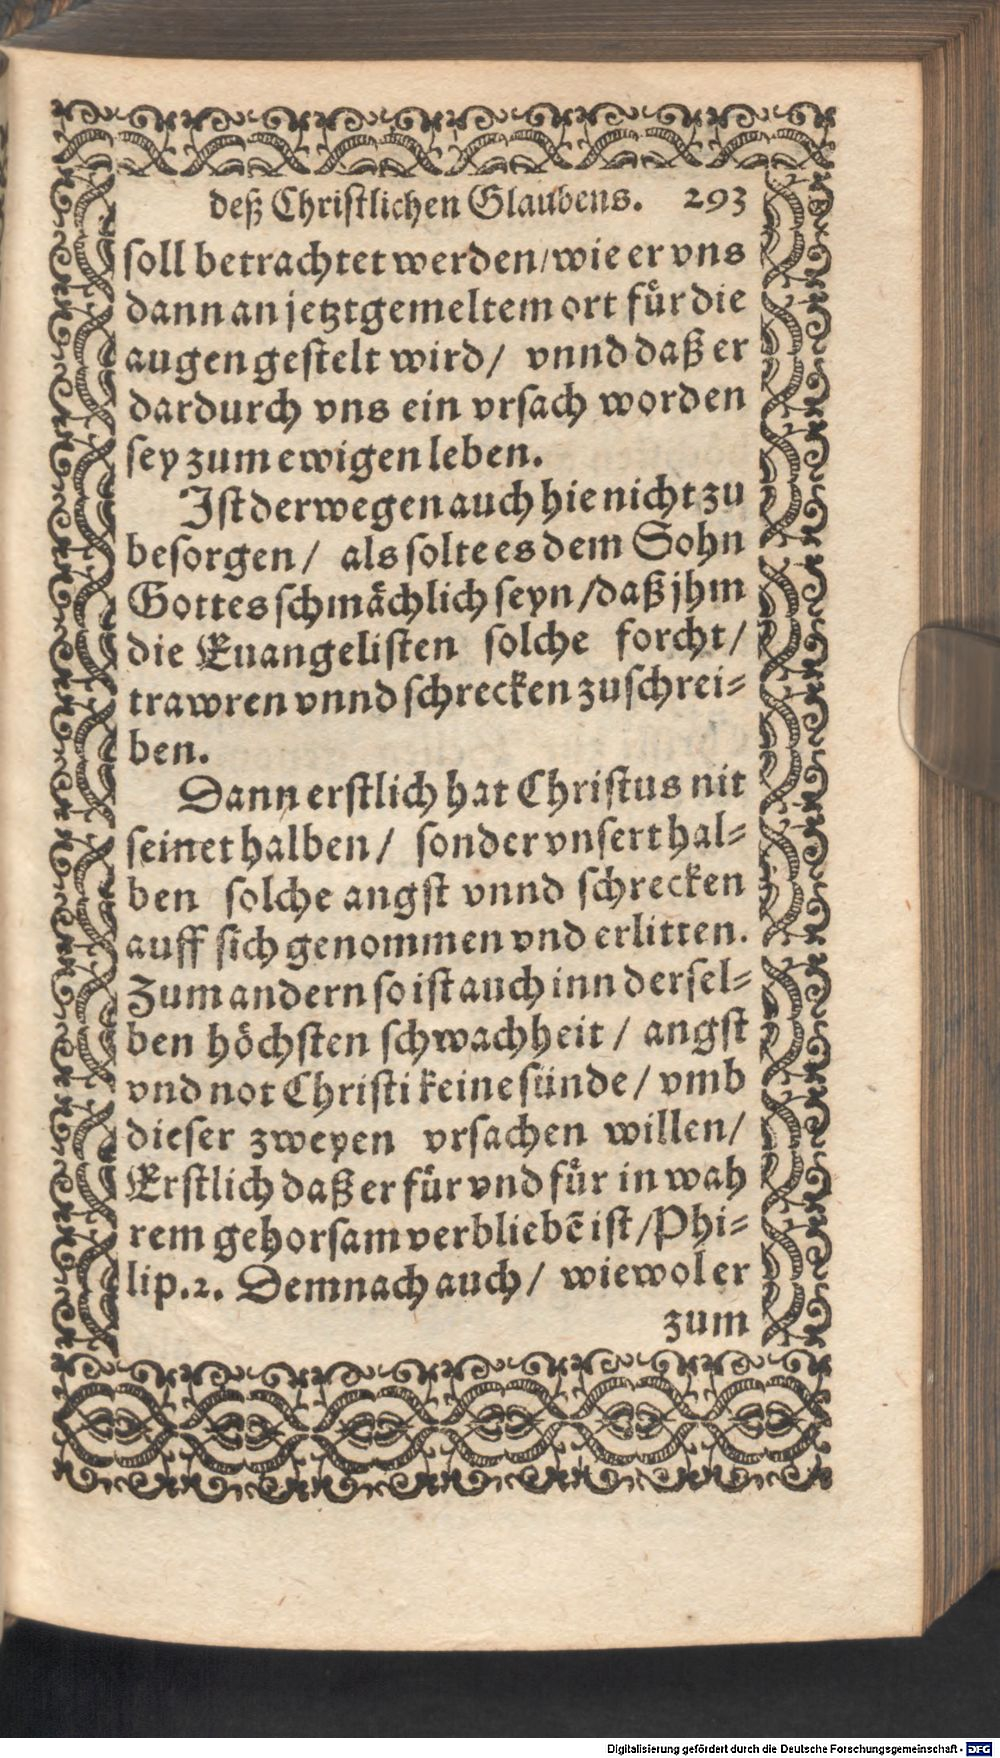 deß Christlichen Glaubens. 293
soll betrachtet werden/wie er vns
dann an jetztgemeltem ort fuͤr die
augen gestelt wird/ vnnd daß er
dardurch vns ein vrsach worden
sey zum ewigen leben.
Ist derwegen auch hie nicht zu
besorgen/ als solte es dem Sohn
Gottes schmaͤchlich seyn/daß jhm
die Euangelisten solche forcht/
trawren vnnd schrecken zuschrei⸗
ben.
Dann erstlich hat Christus nit
seinet halben/ sonder vnsert hal⸗
ben solche angst vnnd schrecken
auff sich genommen vnd erlitten.
Zum andern so ist auch inn dersel⸗
ben hoͤchsten schwachheit/ angst
vnd not Christi keine sünde/ vmb
dieser zweyen vrsachen willen/
Erstlich daß er fuͤr vnd fuͤr in wah
rem gehorsam verbliebē ist/Phi⸗
lip.2. Demnach auch/ wiewol er
zum
Digitalisierung gefördert durch die Deutsche Forschungsgemeinschaft - DFG